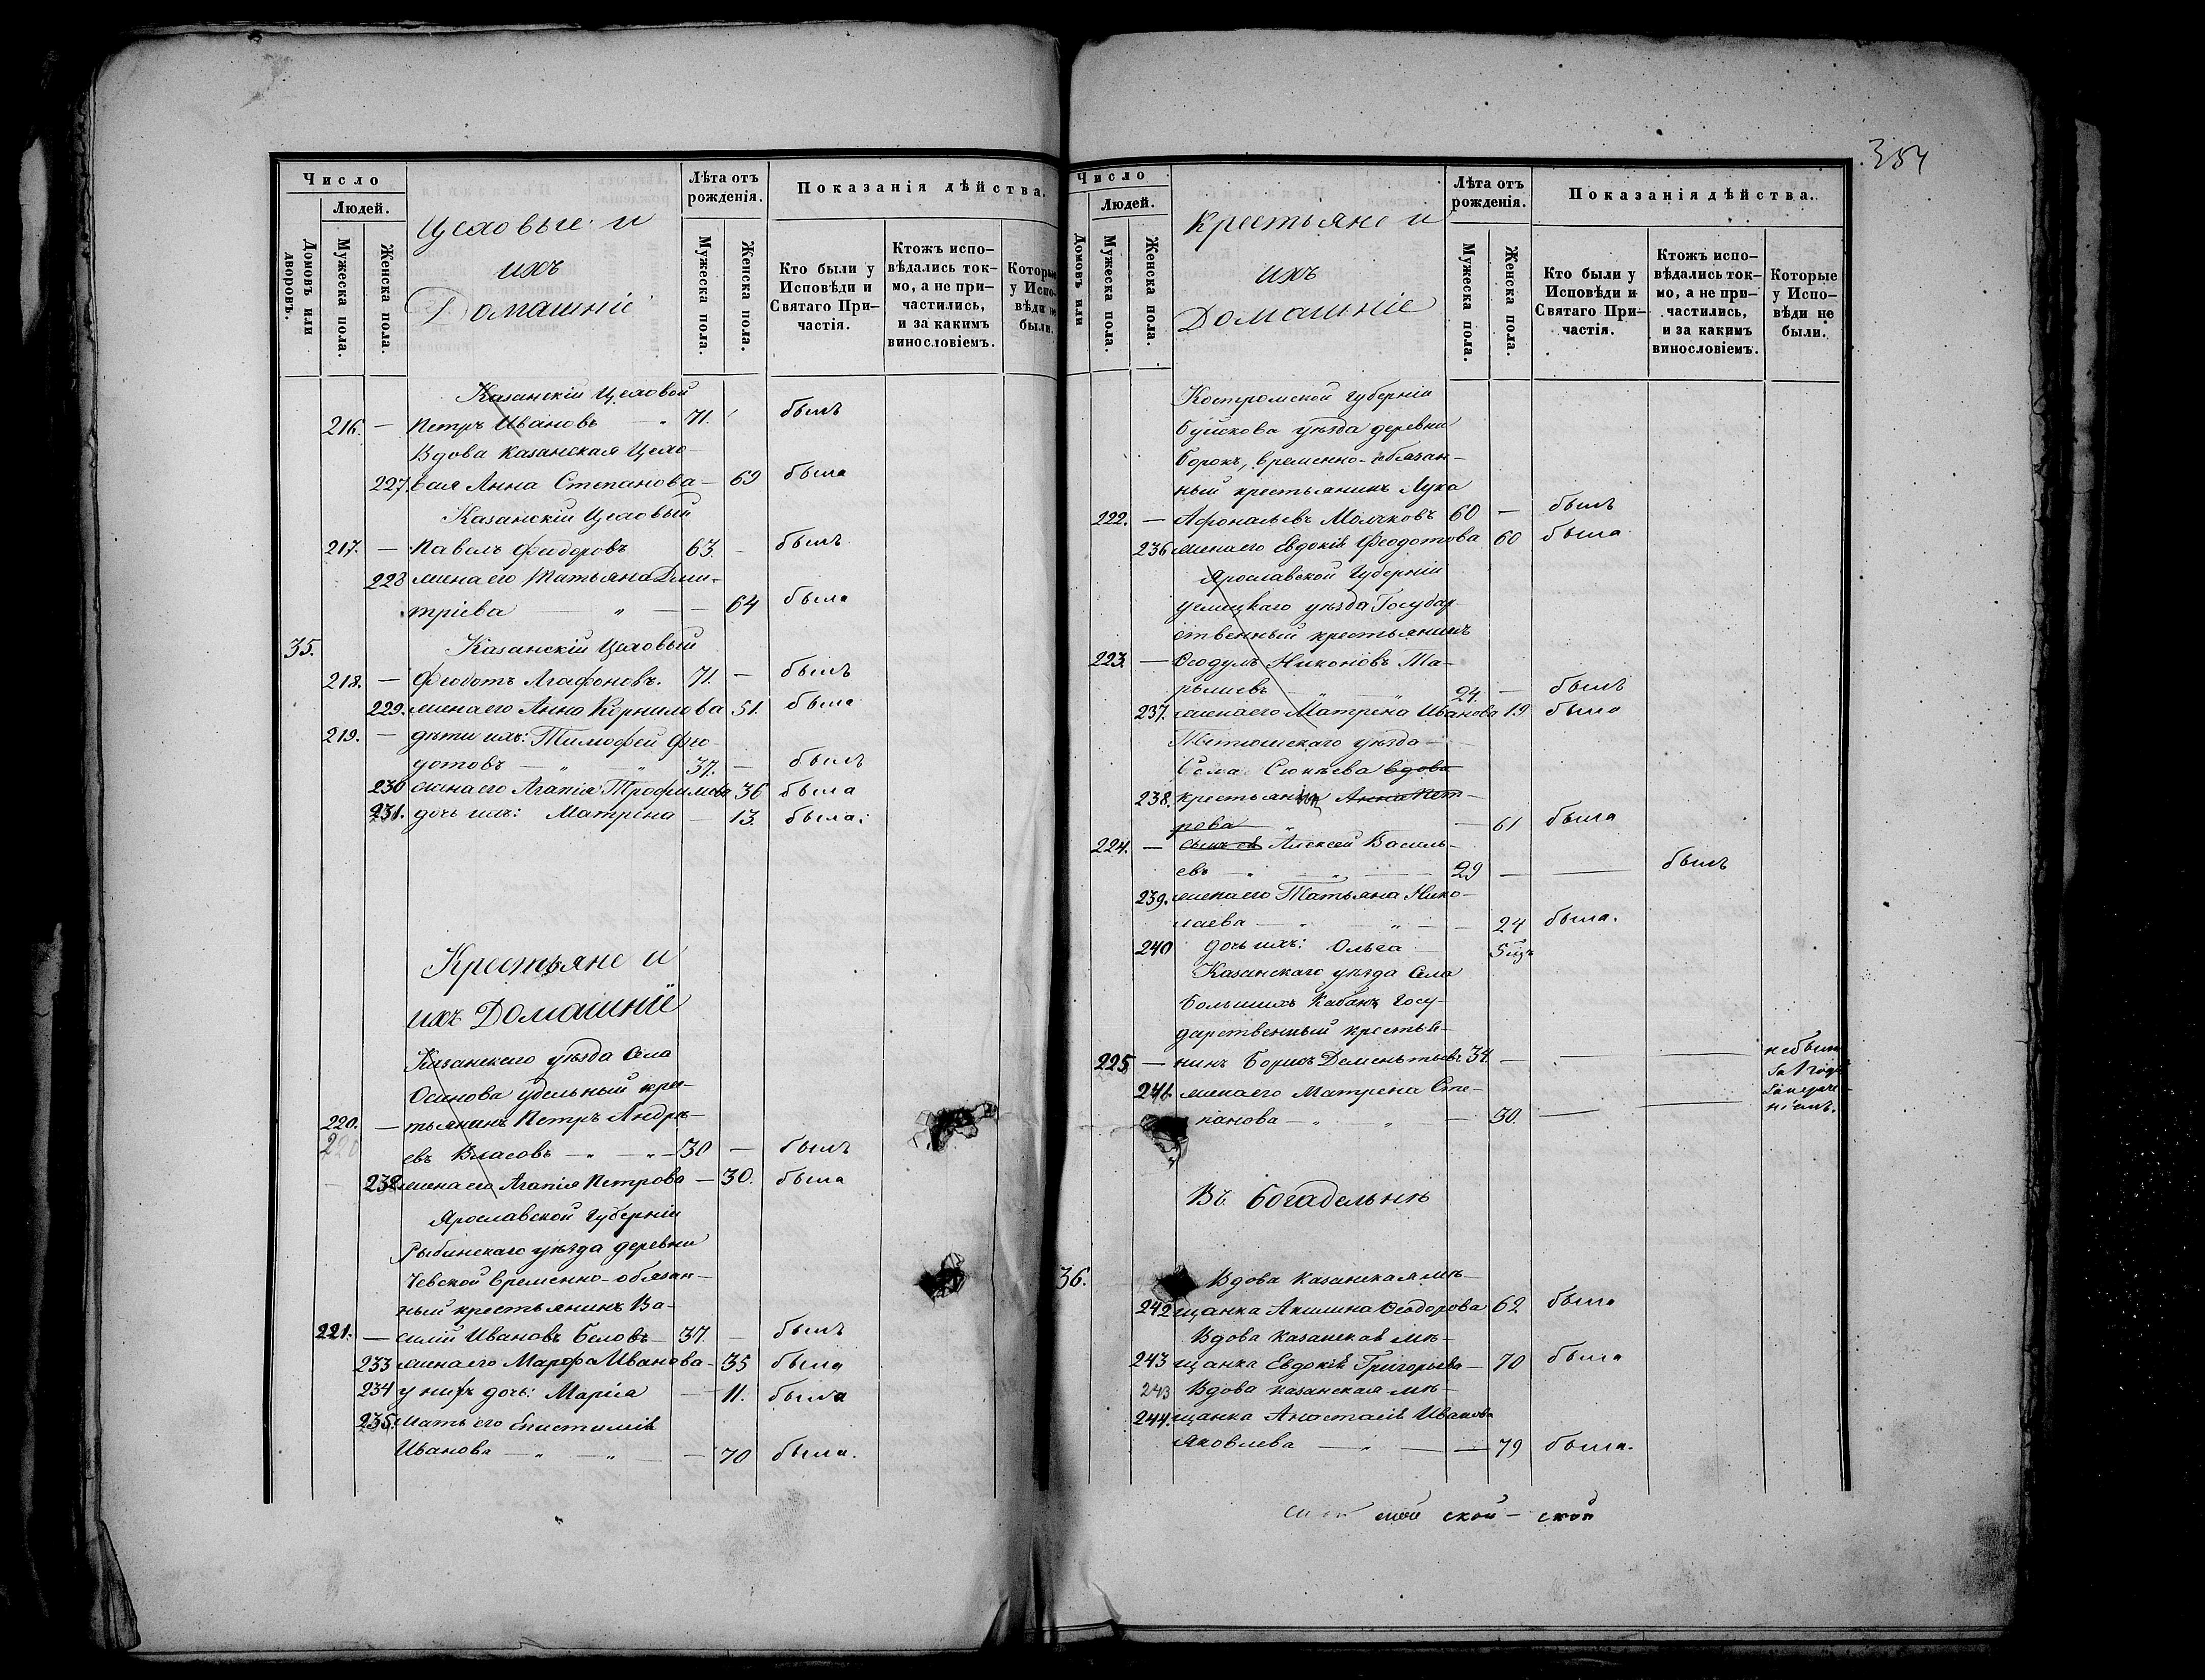 354
Число
Людей.
Домовъ или дворовъ.
Мужеска пола.
Женска пола.
Цеховые и
ихъ
Домашніе
Лѣта отъ рожденія.
Мужеска пола.
Женска пола.
Показанія дѣйства.
Кто были у Исповѣди и Святаго Причастія.
Ктожъ исповѣдались токмо, а не причастились, и за какимъ винословіемъ.
Которые у Исповѣди не были.
Казанскій Цеховой
216. — Петръ Ивановъ 71. былъ
Вдова Казанская Цехо-
227. вая Анна Степанова — 69 была
Казанскій Цеховый
217. — Павелъ Феодоровъ 63. — былъ
228 жена его Татьяна Дми-
тріева — „ — — 64 была
35. Казанскій Цеховый
218. — Феодотъ Агафоновъ. 71. — былъ
229. жена его Анна Корнилова 51. была
219. — дѣти ихъ: Тимофей Фео-
дотовъ — „ — „ 37. — былъ
230 жена его Агапія Трофимова 36 была
231. дочь ихъ: Матрена — 13. была:
Крестьяне и
ихъ Домашніе
Казанскаго уѣзда Села
Осинова удельный крес-
220. — тьянинъ Петръ Андре-
220 евъ Власовъ — „ — „ — 30 — былъ
232 жена его Агапія Петрова — 30. была
Ярославской Губерніи
Рыбинскаго уѣзда деревни
Чевской временно-обязан-
ный крестьянинъ Ва-
221. — силій Ивановъ Беловъ 37 — былъ
233 жена его Марфа Иванова — 35 была
234 у нихъ дочь: Марія — 11. была
235. Мать его Епистимія
Иванова — „ — „ — — 70 была.
Число
Людей.
Домовъ или
Мужеска пола.
Женска пола.
Крестьяне и
ихъ
Домашніе
Лѣта отъ рожденія.
Мужеска пола.
Женска пола.
Показанія дѣйства.
Кто были у Исповѣди и Святаго Причастія.
Ктожъ исповѣдались токмо, а не причастились, и за какимъ винословіемъ.
Которые у Исповѣди не были.
Костромской Губерніи
Буйскова уѣзда деревни
Борокъ, временно-обязан-
ный крестьянинъ Лука
222. — Афонасьевъ Молчковъ 60 — былъ
236 жена его Евдокія Феодотова 60 была
Ярославской Губерніи
углицкаго уѣзда Государ
ственный крестьянинъ
223. — Феодулъ Никоновъ Та-
рышевъ — „ — „ 24. — былъ
237. жена его Матрена Иванова 19 была
Тетюшскаго уѣзда —
Села Сюнѣева вдова
238. крестьянин Анна Пет-
рова „ — 61 была
224. — сынъ ея Алексей Василь-
евъ — „ — „ — 29 — — былъ
239. жена его Татьяна Нико-
лаева — „ — „ — — 24 была.
240 дочь ихъ: Ольга 5
Казанскаго уѣзда Села
Большихъ Кабанъ Госу-
дарственный крестья-
225 — нинъ Борисъ Дементьевъ 34. — — — небыли
241. жена его Матрена Сте-
панова — „ — „ — 30. — —
Въ богадельнѣ
36. Вдова Казанская мѣ-
242 щанка Акилина Феодорова 62 была
Вдова Казанская мѣ-
243 щанка Евдокія Григорьева — 70 была
243 Вдова казанская мѣ-
244. щанка Анастасія Иванова
Яковлева — „ — — 79 была.
ской — ской